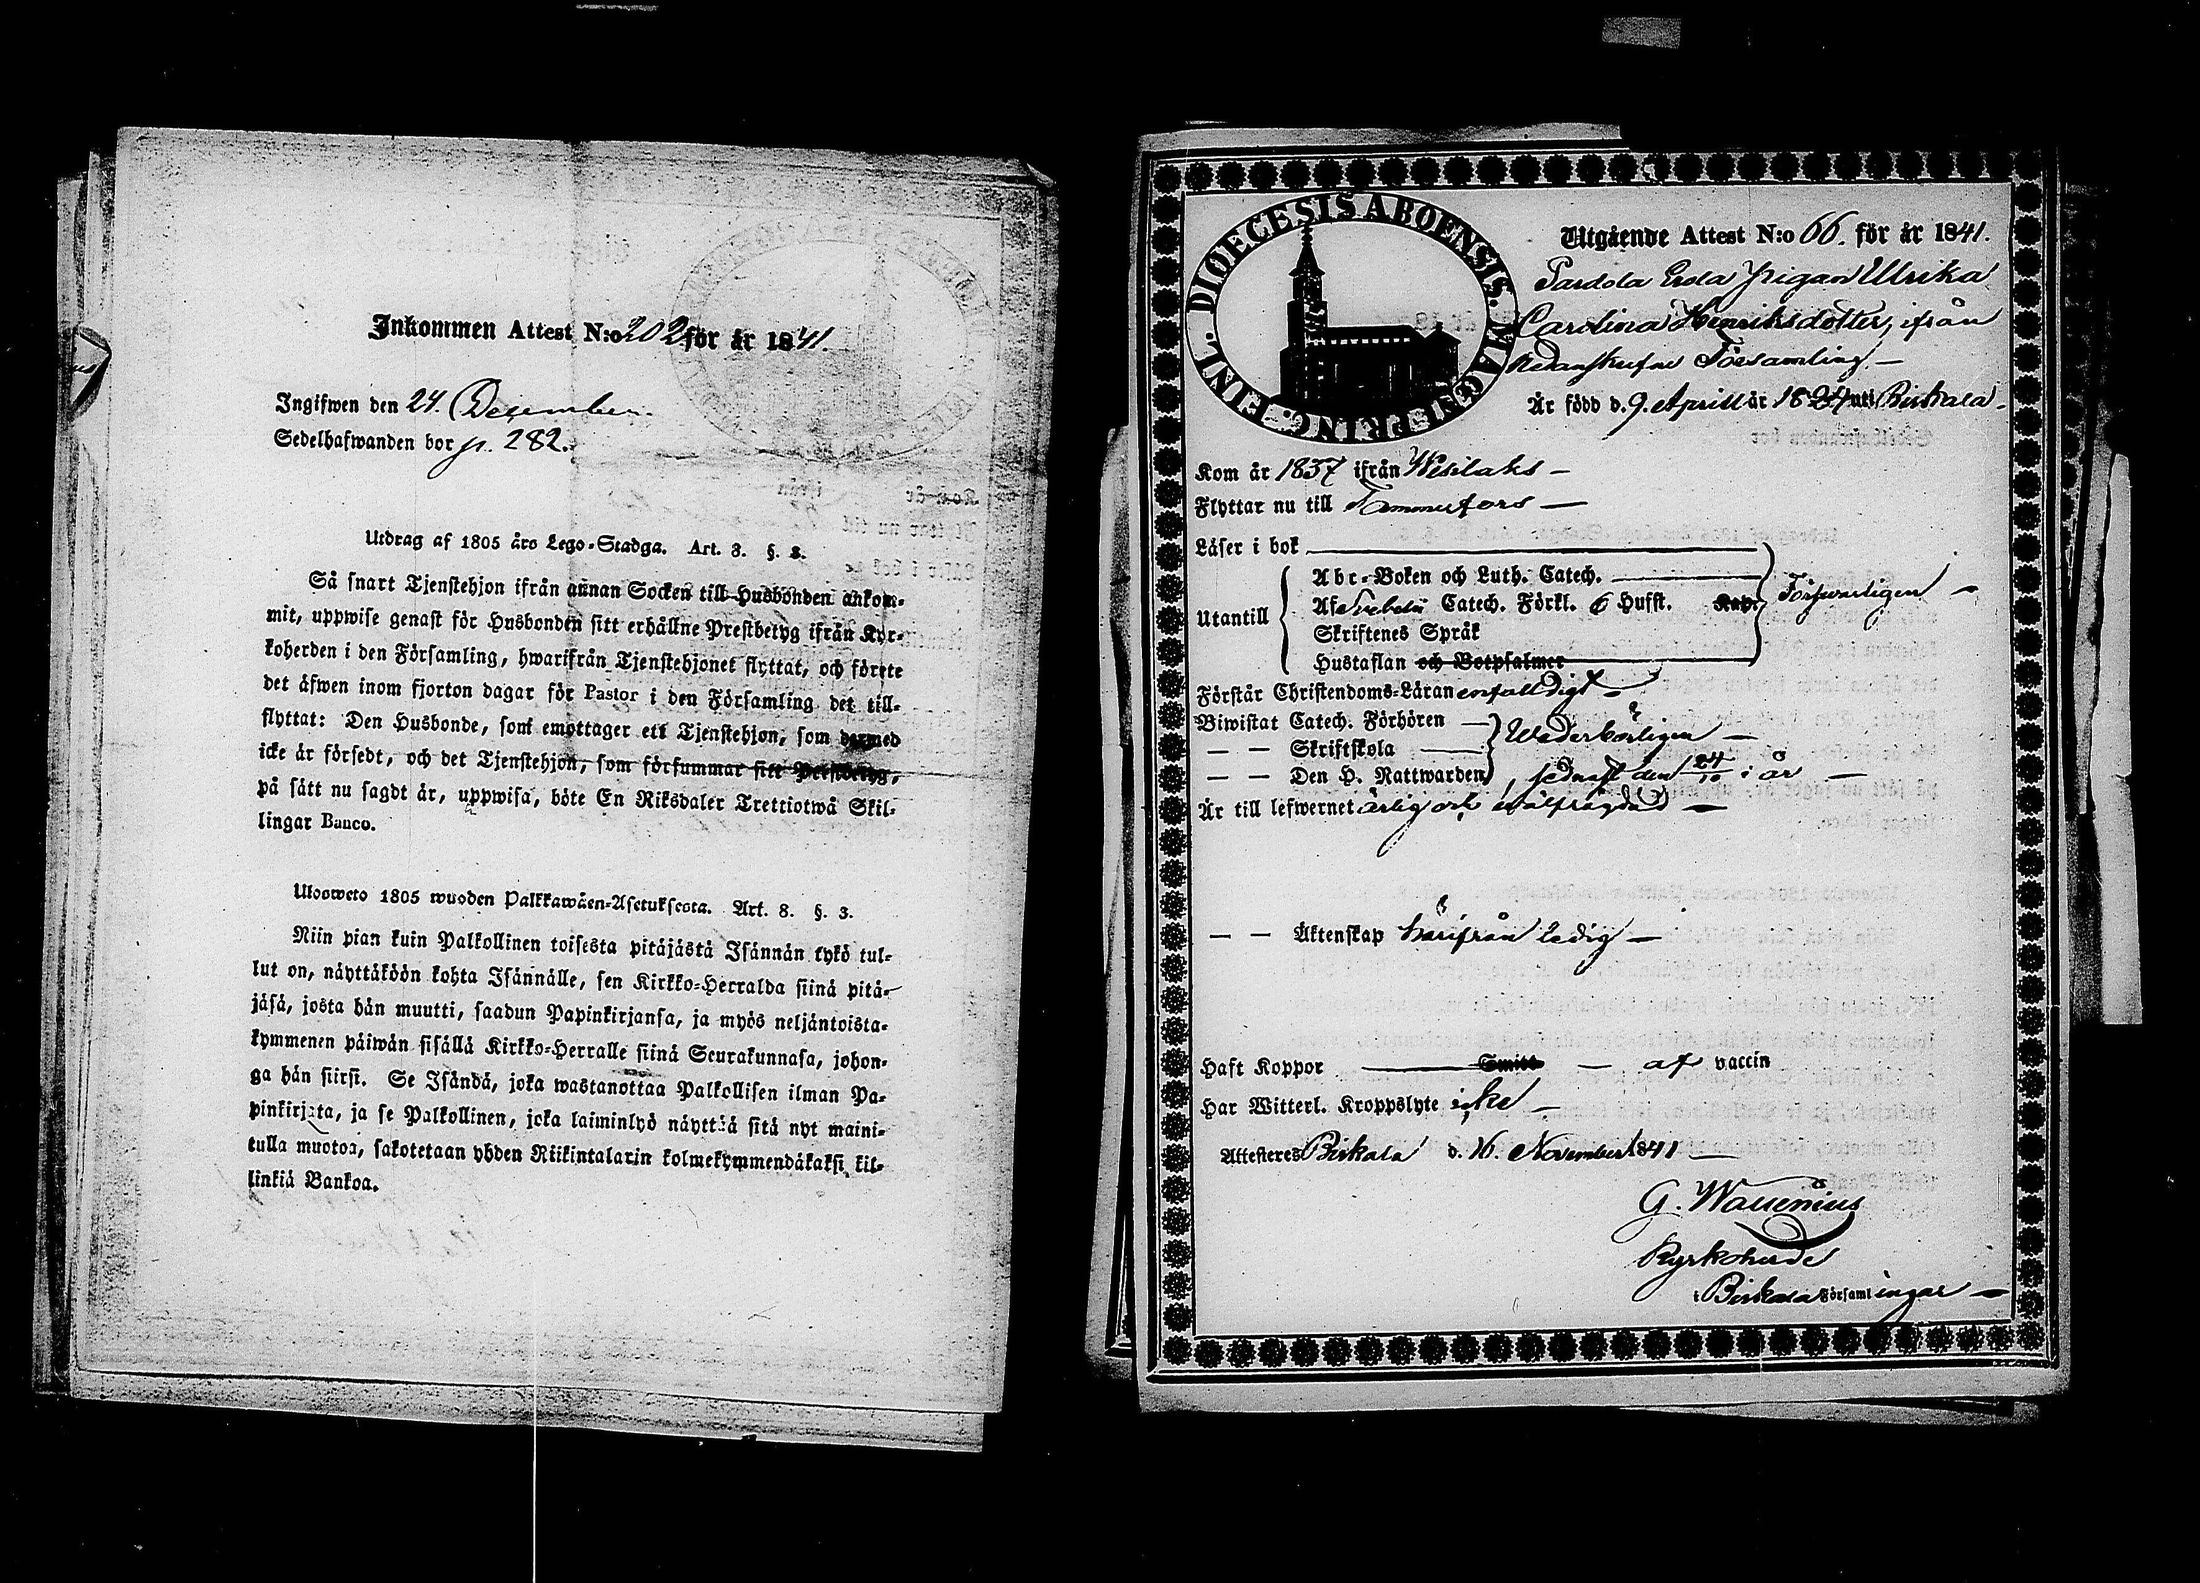 Inkommen Attest N:o 202 för år 1841.
Ingifwen den 24. December.
Sedelhafwanden bor p. 282.
Utdrag af 1805 års Lego-Stadga. Art. 8. §. 3.
Så snart Tjenstehjon ifrån annan Socken till Husbonden ankom-
mit, uppwise genast för Husbonden sitt erhållne Prestbetyg ifrån Kyr-
koherden i den Församling, hwarifrån Tjenstehjonet flyttat, och förete
det äfwen inom fjorton dagar för Pastor i den Församling det till-
flyttat: Den Husbonde, som emottager ett Tjenstehjon, som dermed
icke är försedt, och det Tjenstehjon, som försummar sitt Prestbetyg,
på sätt nu sagdt är, uppwisa, böte En Riksdaler Trettiotwå Skil-
lingar Banco.
Ulosweto 1805 wuoden Palkkawäen-Asetuksesta. Art. 8. §. 3.
Niin pian kuin Palkollinen toisesta pitäjästä Isännän tykö tul-
lut on, näyttäköön kohta Isännälle, sen Kirkko-Herralda siinä pitä-
jäsä, josta hän muutti, saadun Papinkirjansa, ja myös neljäntoista-
kymmenen päiwän sisällä Kirkko-Herralle siinä Seurakunnasa, johon-
ga hän siirsi. Se Isändä, joka wastanottaa Palkollisen ilman Pa-
pinkirjata, ja se Palkollinen, joka laiminlyö näyttää sitä nyt maini-
tulla muotoa, sakotetaan yhden Riikintalarin kolmekymmendäkaksi kil-
linkiä Bankoa.
FINL. DIOECESIS ABOENSIS. MAGN. PRINC.
Utgående Attest N:o 66. för år 1841.
Pigan Ulrika
Carolina Henriksdotter, ifrån
Församling
Är född d. 9. April år 1824 uti Birkala
Kom år 1837 ifrån Wesilaks
Flyttar nu till Tammerfors
Läser i bok
Utantill
Abc-Boken och Luth. Catech.
Af Svebelii Catech. Förkl. 6 Hufst. Kap. Försvarligen
Skriftenes Språk
Hustaflan och Botpsalmer
Förstår Christendoms-Läran enfalldigt
Biwistat Catech. Förhören
— — Skriftskola Wederbörligen
— — Den H. Nattwarden, sednast den 24/10 i år
Är till lefwernet ärlig och wälfrägdad
— — Äktenskap härifrån ledig
Haft Koppor Smitt af vaccin
Har Witterl. Kroppslyte icke
Attesteres Birkala d. 16. November 1841
G. Wallenius
Kyrkoherde
i Birkala Församlingar